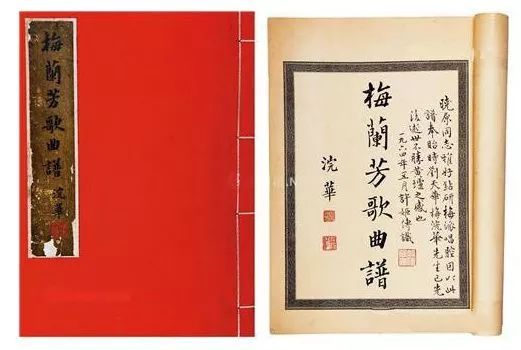 梅蘭芳歌曲譜
浣華
曉原同志雅好鉆研梅派唱腔因以此
譜奉貽時劉天華梅浣華先生已先
後逝世不勝黃壚之感也
一九六四年五月許姬傳識
梅蘭芳歌曲譜
浣華